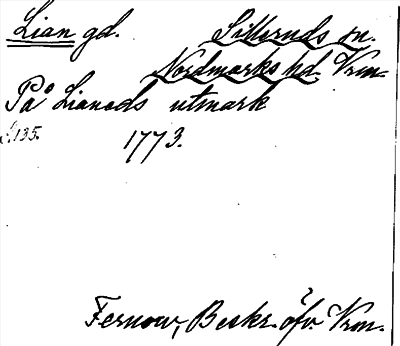 Lian gd. Silleruds sn.
Nordmarks hd. Vrm.
På Lianeds utmark
s. 135. 1773.
Fernow, Beskr. öfv. Vrm.